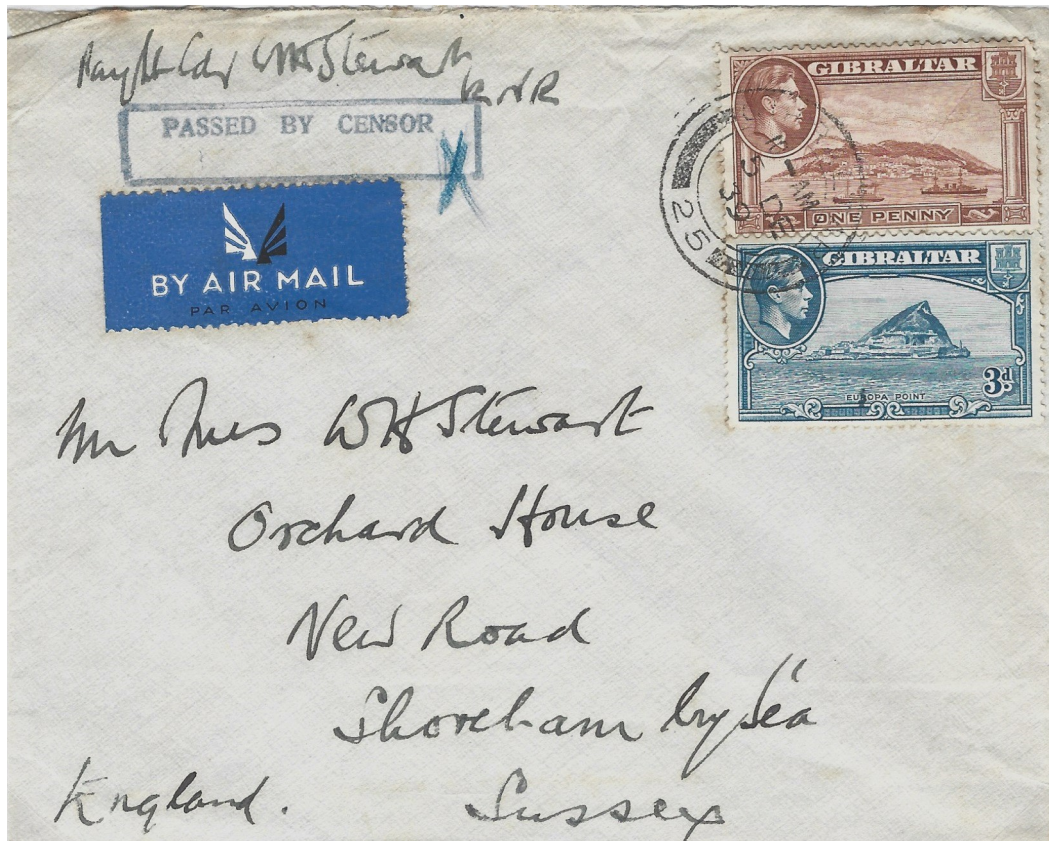 WH Stewart
RNR
PASSED BY CENSOR
X
BY AIR MAIL
PAR AVION
GIBRALTAR
ONE PENNY
GIBRALTAR
EUROPA POINT
3d
AM
5 DE
39
25
Mr Mrs WH Stewart
Orchard House
New Road
Shoreham by Sea
England. Sussex